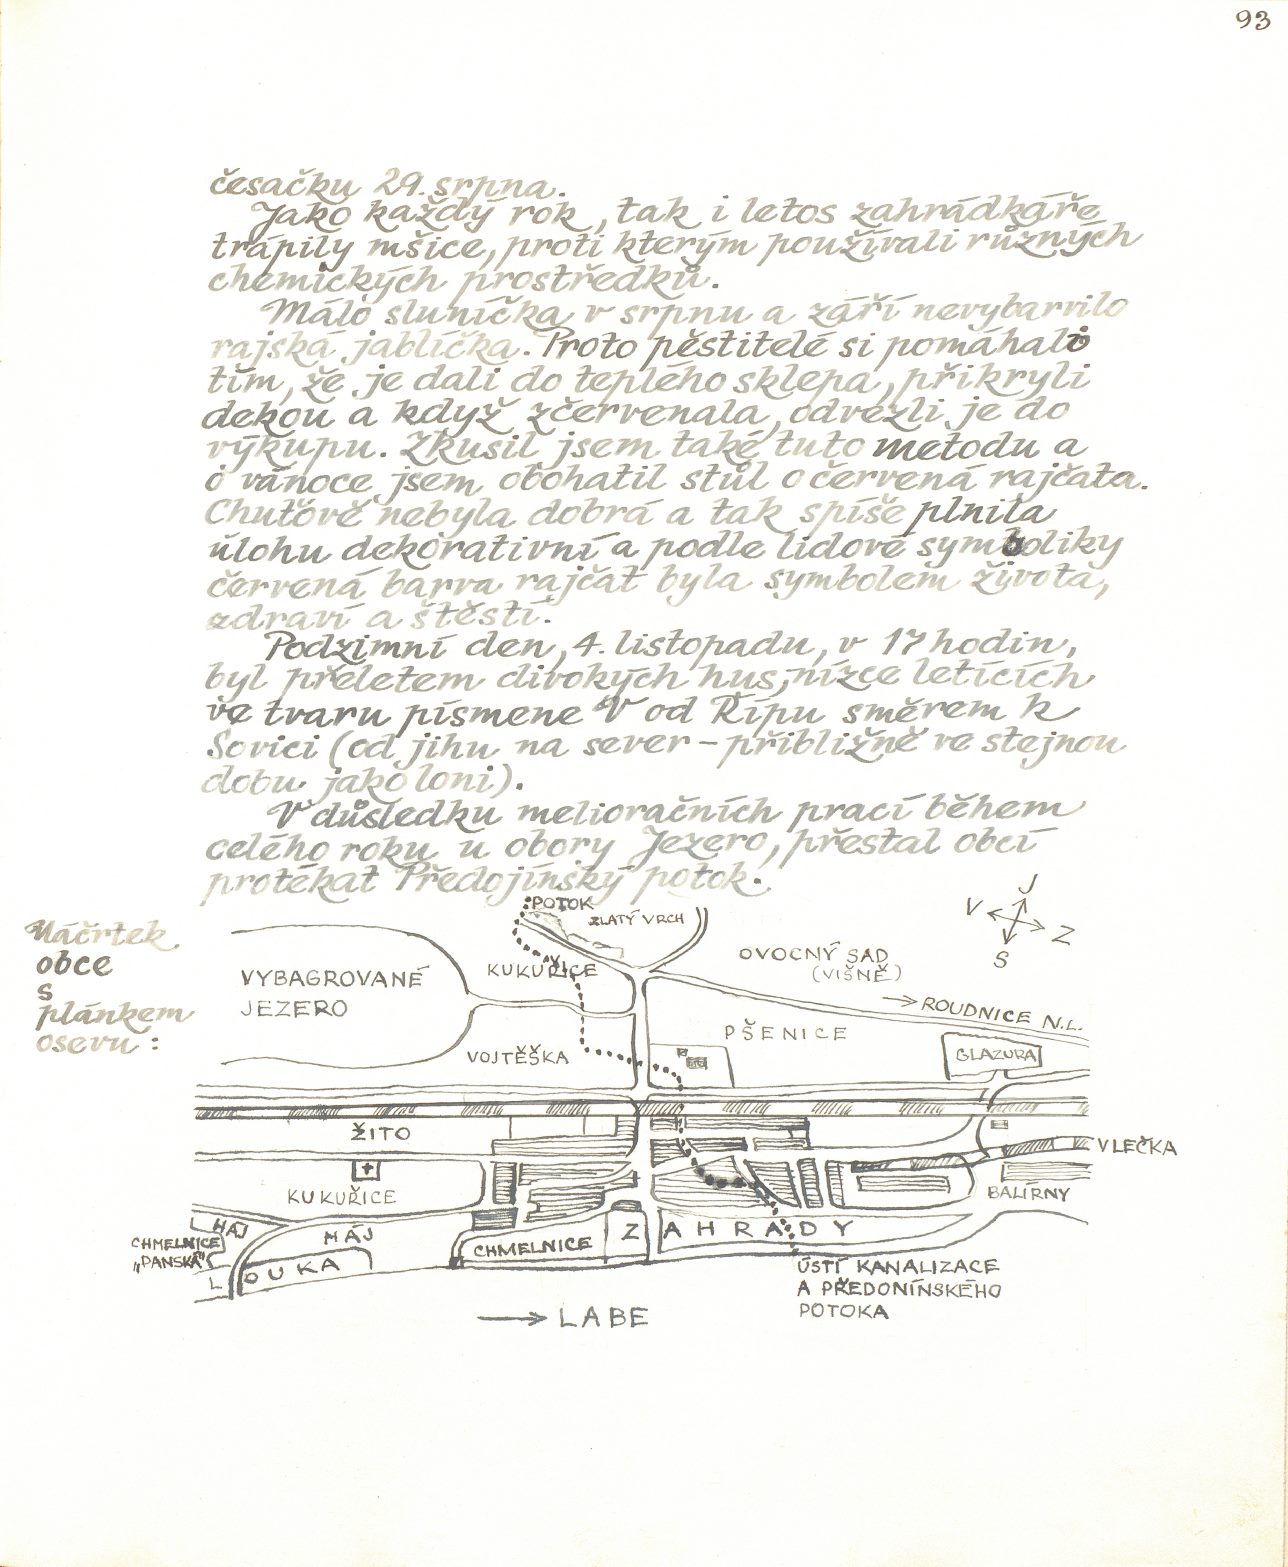 93
česačku 29. srpna.
Jako každý rok, tak i letos zahrádkáře
trápily mšice, proti kterým používali různých
chemických prostředků.
Málo sluníčka v srpnu a září nevybarvilo
rajská jablíčka. Proto pěstitelé si pomáhali
tím, že je dali do teplého sklepa, přikryli
dekou a když zčervenala, odvezli je do
výkupu. Zkusil jsem také tuto metodu a
o vánoce jsem obohatil stůl o červená rajčata.
Chuťově nebyla dobrá a tak spíše plnila
úlohu dekorativní a podle lidové symboliky
červená barva rajčat byla symbolem života,
zdraví a štěstí.
Podzimní den, 4. listopadu, v 17 hodin,
byl přeletem divokých hus, nízce letících
ve tvaru písmene V od Řípu směrem k
Sovici (od jihu na sever - přibližně ve stejnou
dobu jako loni).
V důsledku melioračních prací během
celého roku u obory Jezero, přestal obcí
protékat Předojínský potok.
Náčrtek
obce
s
plánkem
osevu:
POTOK
ZLATÝ VRCH
J
V
Z
S
OVOCNÝ SAD
(VIŠNĚ)
KUKUŘICE
VYBAGROVANÉ
JEZERO
ROUDNICE N.L.
PŠENICE
VOJTĚŠKA
GLAZURA
ŽITO
VLEČKA
KUKUŘICE
BALÍRNY
HÁJ
HÁJ
ZAHRADY
CHMELNICE
"PANSKÁ"
CHMELNICE
LOUKA
ÚSTÍ KANALIZACE
A PŘEDONÍNSKÉHO
POTOKA
LABE